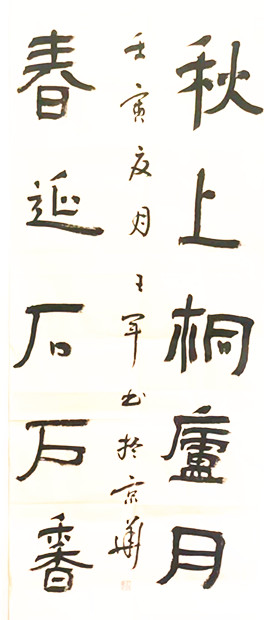 秋上桐廬月
春延石户香
壬寅夏月王军书於京華